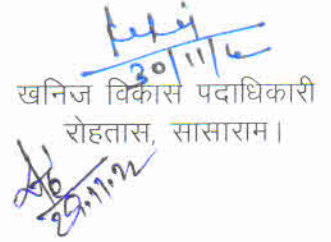 30/11/22
खनिज विकास पदाधिकारी
रोहतास, सासाराम।
29.11.22